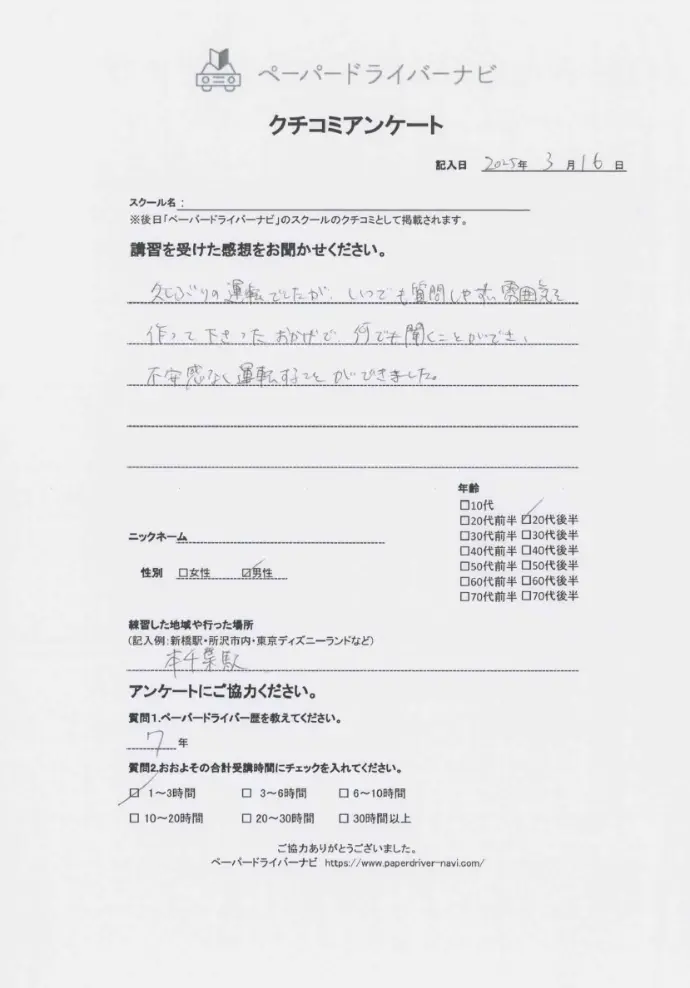 ペーパードライバーナビ
クチコミアンケート
記入日 2025年 3月16日
スクール名：
※後日「ペーパードライバーナビ」のスクールのクチコミとして掲載されます。
講習を受けた感想をお聞かせください。
久しぶりの運転でしたが、いつでも質問しやすい雰囲気を
作って下さったおかげで、何でも聞くことができ、
不安感なく運転することができました。
年齢
□10代
□20代前半 ☑20代後半
□30代前半 □30代後半
□40代前半 □40代後半
□50代前半 □50代後半
□60代前半 □60代後半
□70代前半 □70代後半
ニックネーム
性別 □女性 ☑男性
練習した地域や行った場所
(記入例:新橋駅・所沢市内・東京ディズニーランドなど)
本千葉駅
アンケートにご協力ください。
質問1.ペーパードライバー歴を教えてください。
7年
質問2.おおよその合計受講時間にチェックを入れてください。
☑ 1～3時間 □ 3～6時間 □ 6～10時間
□ 10～20時間 □ 20～30時間 □ 30時間以上
ご協力ありがとうございました。
ペーパードライバーナビ https://www.paperdriver-navi.com/